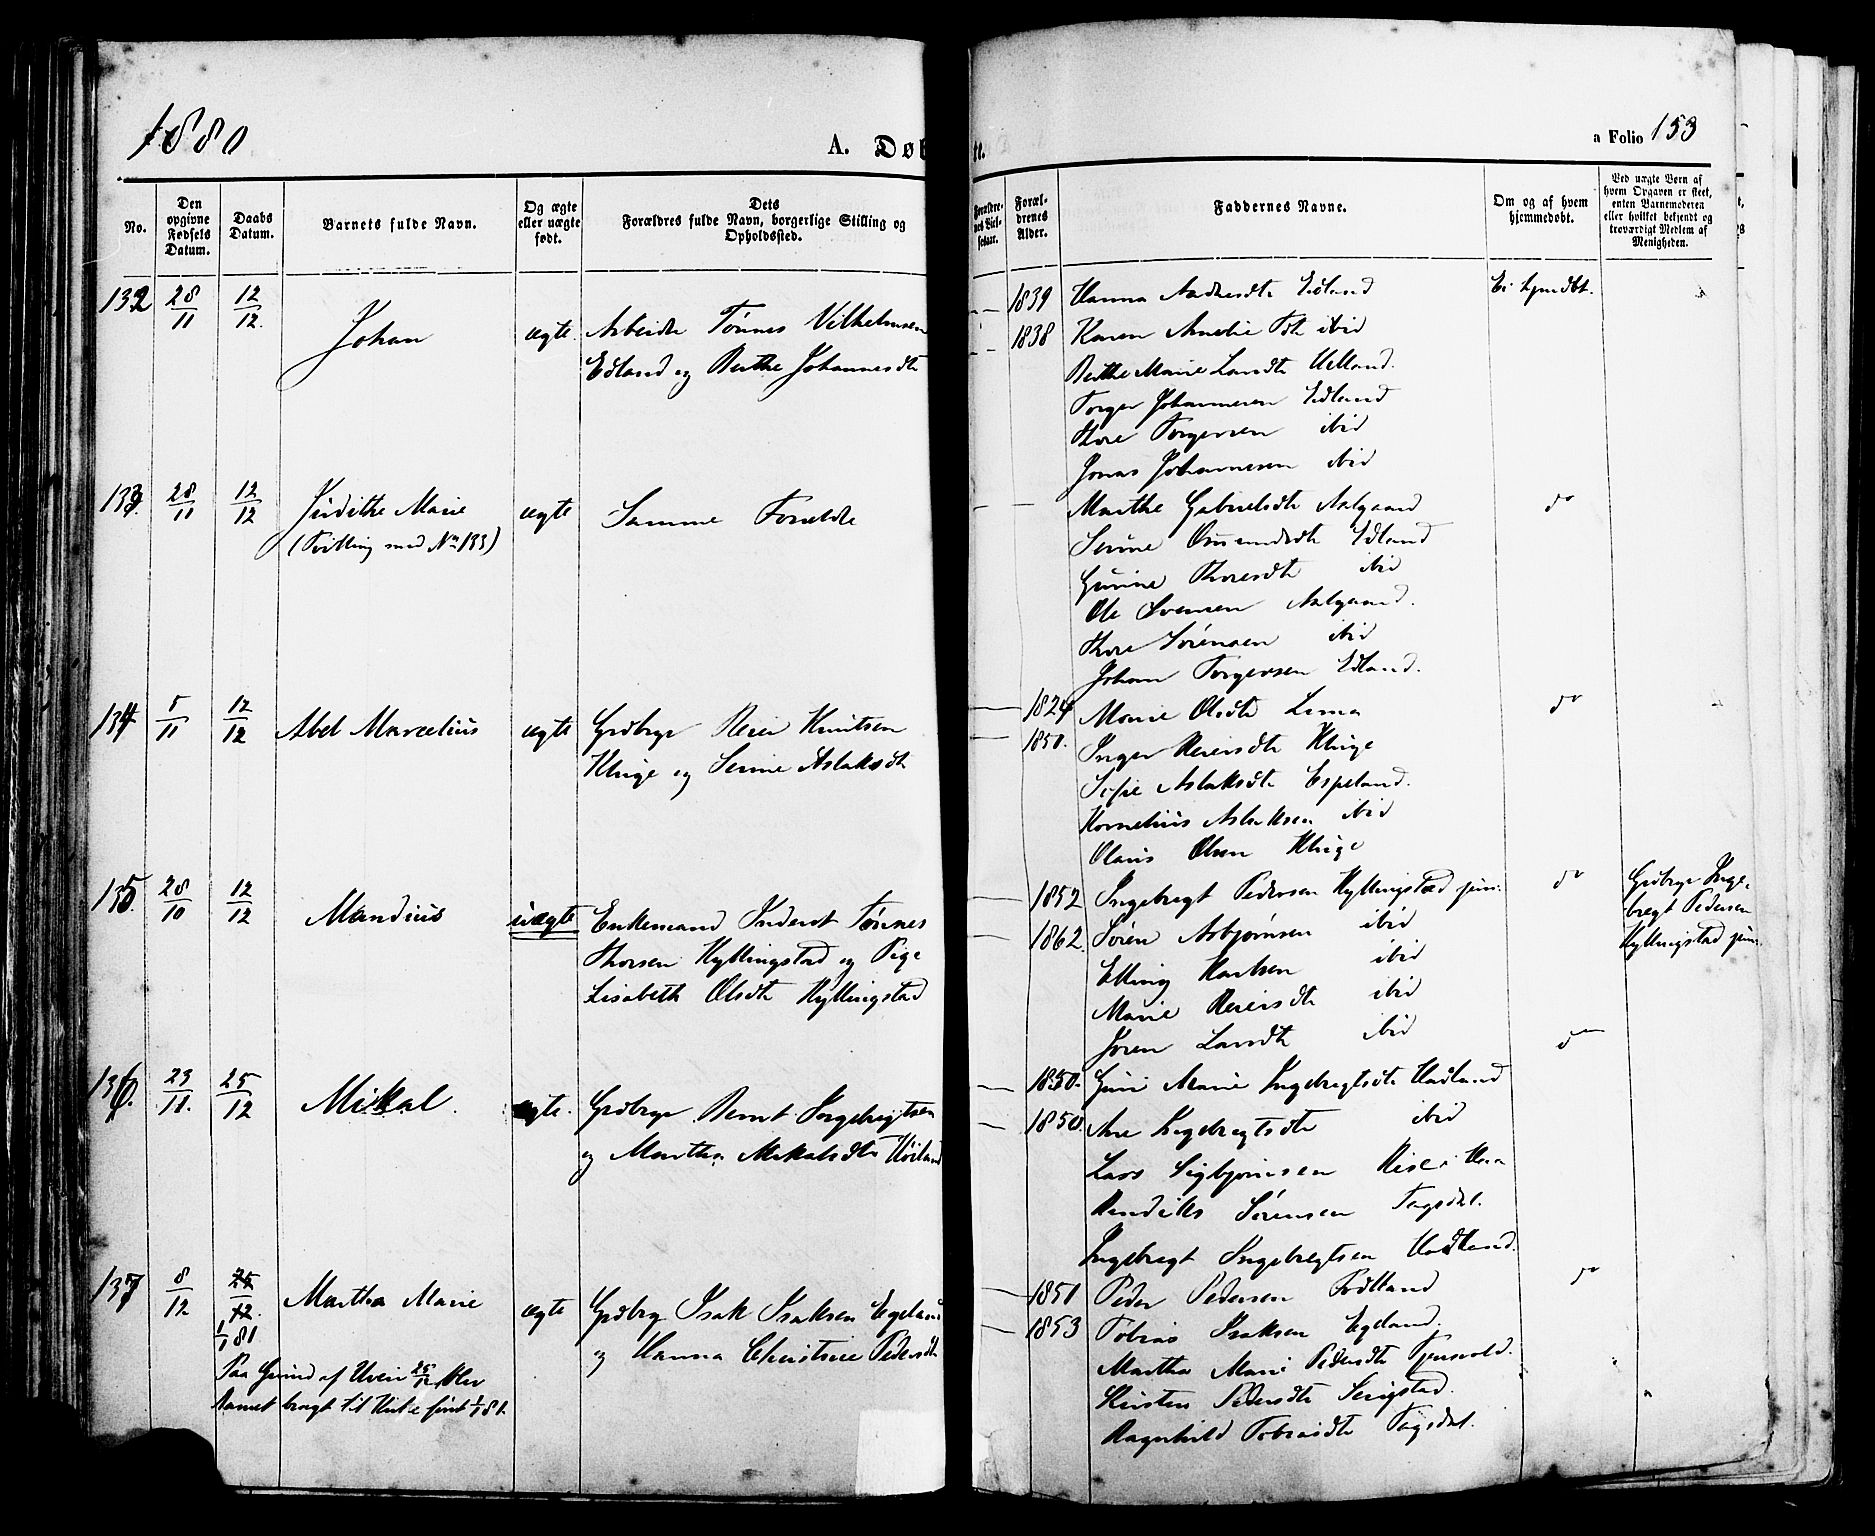 1880
A. Døb
tt.
a Folio 153
No.
Den opgivne Fødsels Datum.
Daabs Datum.
Barnets fulde Navn.
Og ægte eller uægte født.
Dets Forældres fulde Navn, borgerlige Stilling og Opholdssted.
Foræl-drenes Alder.
Faddernes Navne.
Om og af hvem hjemmedøbt.
Ved uægte Børn af hvem Opgaven er skeet, enten Barnemoderen eller hvilket bekjendt og troværdigt Medlem af Menigheden.
132 28/11 12/12. Johan ægte. Arbeider Tønnes Vilhelmsen
Edland og Berthe Johannesdtr
1839 Hanna Edland
1838 Karen Amelie Tdtr ibid
Berthe Marie Larsdtr
Torger Johannesen Edland
Thore Torgersen ibid
Jonas Johannesen ibid
133. 28/11 12/12 Judithe Marie ægte Samme Forældre
(Tvilling med No 133)
Marthe Gabrielsdtr Aalgaard do
Serine Ommundsdtr Edland
Gurine Thoresdtr ibid
Ole Svensen Aalgaard.
Thore Sørensen ibid
Johan Torgersen Edland.
134 5/11 12/12 Abel Marcelius ægte Grdbrgr Reier Knutsen
Kluge og Serine Aslaksdtr
1824 Marie Olsdtr Lima do
1850. Inger Reiersdtr Kluge
Sofie Aslaksdtr Espeland.
Kornelius Aslaksen ibid
Olaus Olsen Kluge
135. 28/10 12/12 Mandius uægte Enkemand Inderst Tønnes
Thorsen Hyllingstad og Pige
Lisabeth Olsdtr Hyllingstad
1852 Ingebregt Pedersen Hyllingstad jun: do Grdbrgr Inge-
bregt Pedersen
Hyllingstad jun:
1862 Søren Asbjørnsen ibid
Elling Karlsen ibid
Marie Reiersdtr ibid
Joren Larsdtr ibid
136. 23/11. 25/12 Mikal. ægte. Grdbrgr Bernt Ingebregtsen
og Martha Mikalsdtr Høiland
1850. Guri Marie Ingebregtsdtr Hadland do
1850. Ane Ingebregtsdtr ibid
Lars Sigbjørnsen
Bendiks Sørensen Tagsdal.
Ingebregt Ingebregtsen Hadland.
137 8/12 25/12. Martha Marie ægte Grdbrg Isak Isaksen Egeland
1/1 81
og Hanna Christine Pedersdtr
Paa Grund af Uveir 25/12 blev
Barnet bragt til Kirke først 1/1 81.
1851 Peder Pedersen Fodland do
1853 Tobias Isaksen Egeland.
Martha Marie Pedersdtr
Kirsten Pedersdtr Serigstad.
Ragnhild Tobiasdtr Tagsdal.